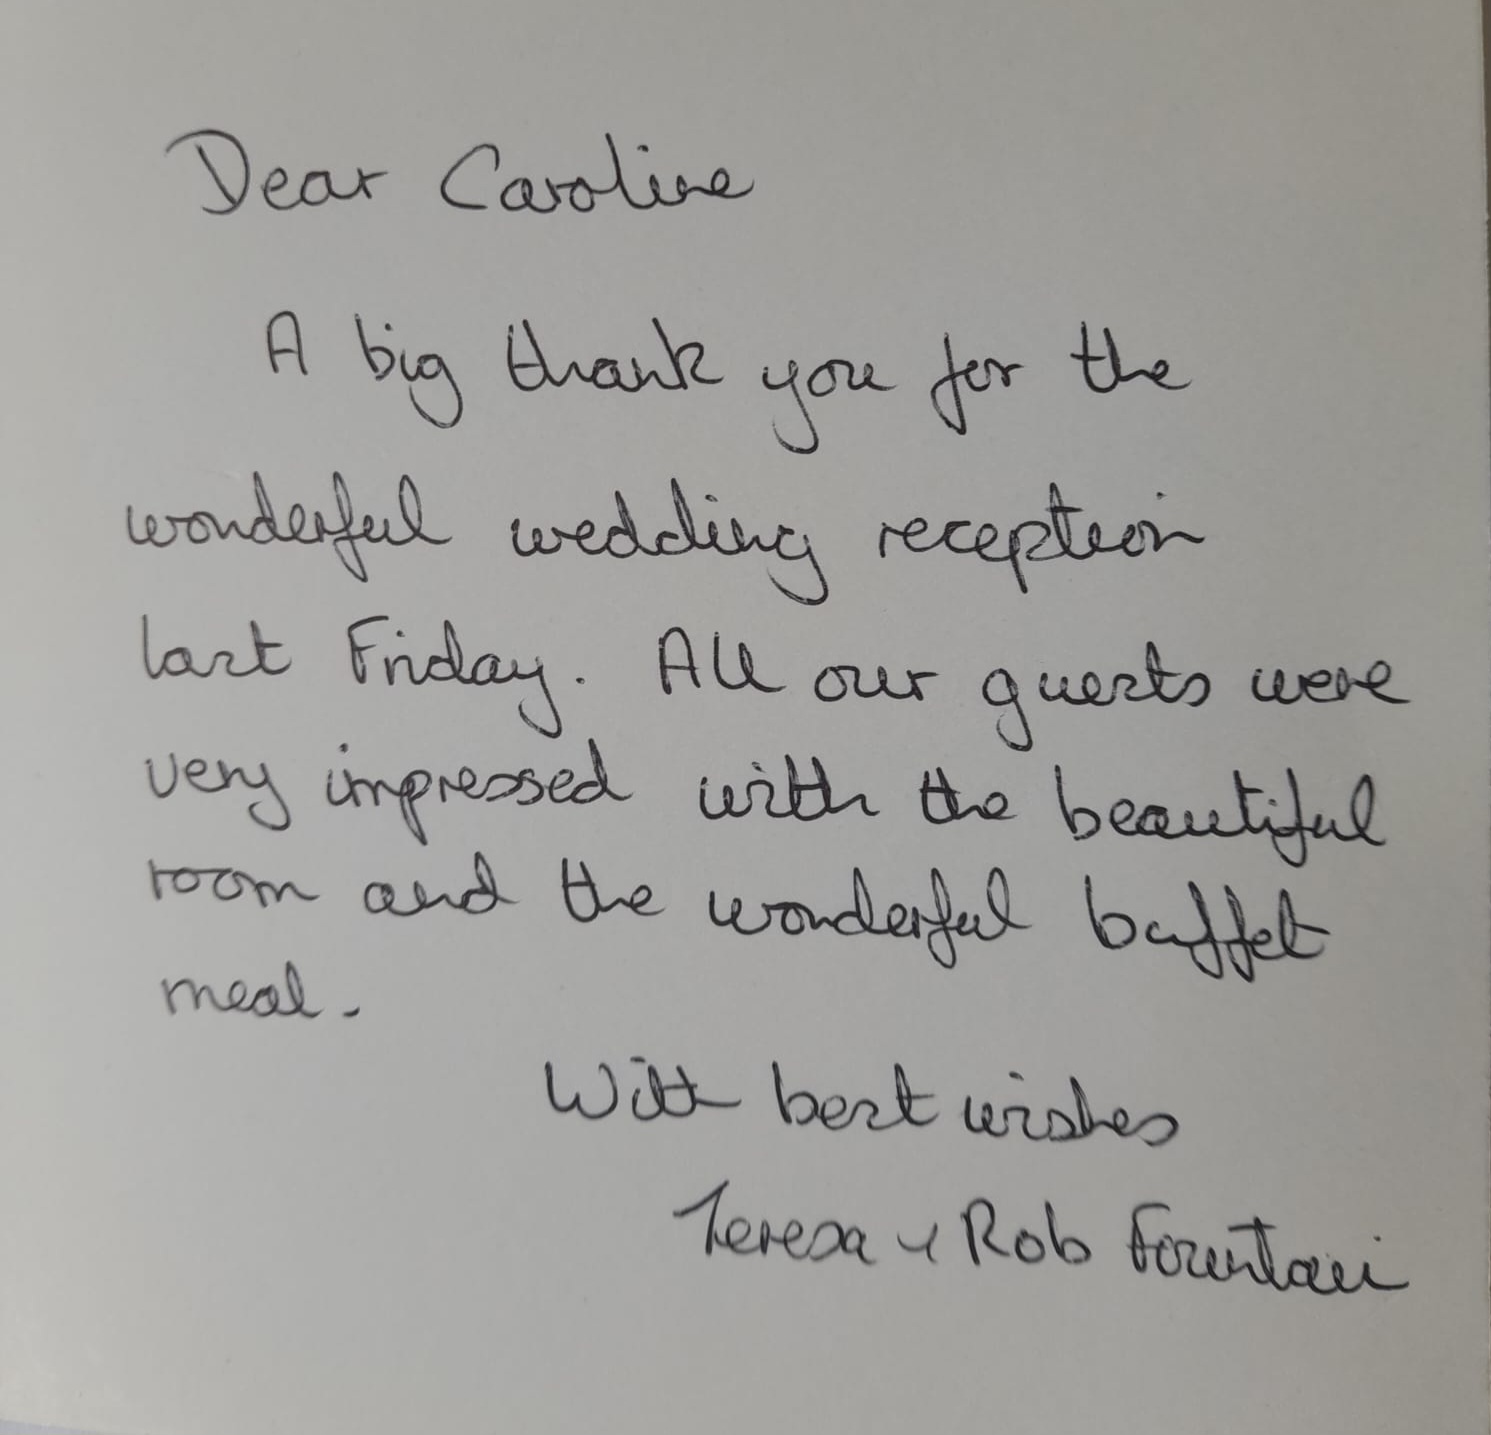 Dear Caroline
A big thank you for the
wonderful wedding reception
last Friday. All our guests were
very impressed with the beautiful
room and the wonderful buffet
meal.
With best wishes
Teresa & Rob Fountain